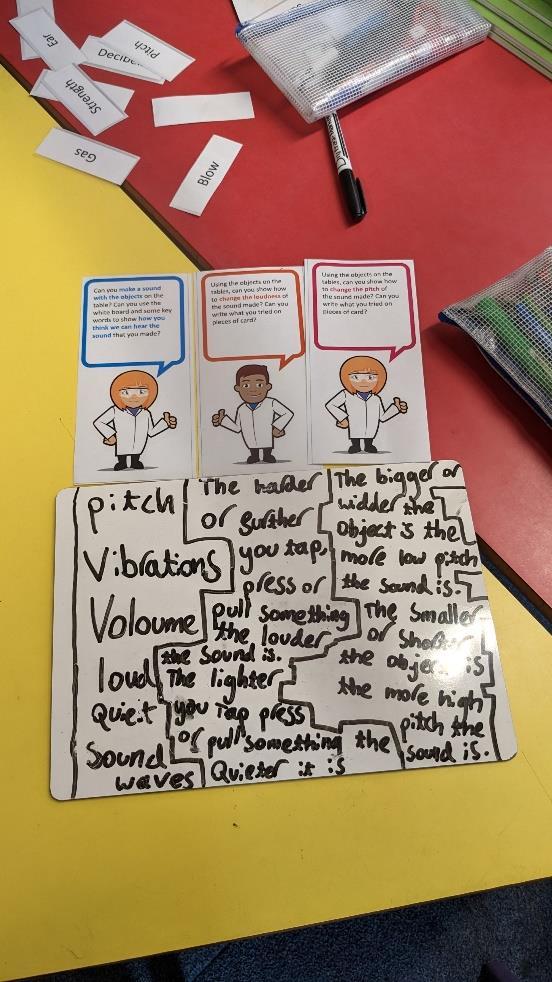 Ear
Pitch
Decibel
Strength
Gas
Blow
Can you make a sound
with the objects on the
table? Can you use the
white board and some key
words to show how you
think we can hear the
sound that you made?
Using the objects on the
tables, can you show how
to change the loudness of
the sound made? Can you
write what you tried on
pieces of card?
Using the objects on the
tables, can you show how
to change the pitch of
the sound made? Can you
write what you tried on
pieces of card?
pitch
Vibrations
Voloume
loud
Quiet
Sound
waves
The harder
or further
you tap,
press or
pull something
the louder
the sound is.
The lighter
you Tap press
or pull something the
Quieter it is
The bigger or
widder the
object is the
more low pitch
the sound is.
The smaller
or shorter
the object is
the more high
pitch the
sound is.